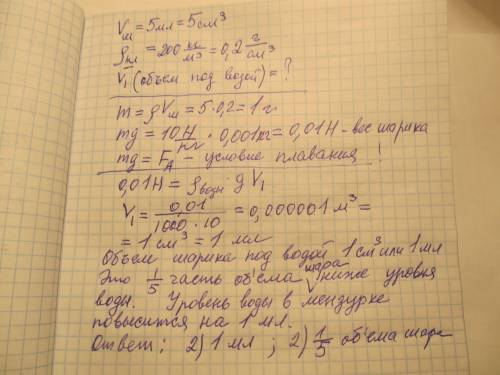 Vш = 5мл = 5см³
ρпл = 200 кг/м³ = 0,2 г/см³
V₁ (объем под водой) = ?
m = ρVш = 5·0,2 = 1г
mg = 10 Н/кг · 0,001кг = 0,01Н – вес шарика
mg = FА – условие плавания !
0,01Н = ρводы g V₁
V₁ = 0,01/1000·10 = 0,000001 м³ =
= 1 см³ = 1 мл
Объем шарика под водой 1 см³ или 1 мл
Это 1/5 часть объема шара ниже уровня
воды. Уровень воды в мензурке
повысится на 1 мл.
Ответ: 2) 1 мл ; 2) 1/5 объема шара